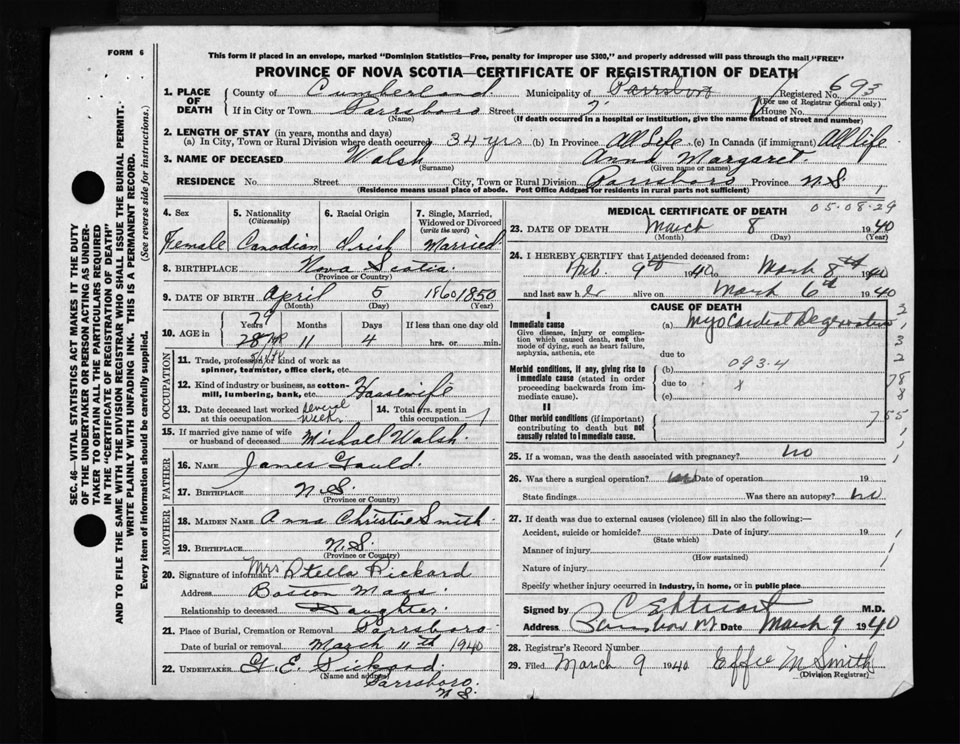 FORM 6
This form if placed in an envelope, marked "Dominion Statistics—Free, penalty for improper use $300," and properly addressed will pass through the mail "FREE"
PROVINCE OF NOVA SCOTIA—CERTIFICATE OF REGISTRATION OF DEATH
1. PLACE OF DEATH
County of Cumberland Municipality of Parrsboro Registered No. 693
(For use of Registrar General only)
If in City or Town Parrsboro Street ? House No.
(Name) (If death occurred in a hospital or institution, give the name instead of street and number)
2. LENGTH OF STAY (in years, months and days)
(a) In City, Town or Rural Division where death occurred 34 yrs (b) In Province All Life (c) In Canada (if immigrant) All life
3. NAME OF DECEASED Walsh Anna Margaret
(Surname) (Given name or names)
RESIDENCE No. Street City, Town or Rural Division Parrsboro Province N.S.
(Residence means usual place of abode. Post Office Address for residents in rural parts not sufficient)
4. Sex
Female
5. Nationality
(Citizenship)
Canadian
6. Racial Origin
Irish
7. Single, Married, Widowed or Divorced
(write the word)
Married
8. BIRTHPLACE Nova Scotia
(Province or Country)
9. DATE OF BIRTH April 5 1860 1850
(Month) (Day) (Year)
10. AGE in
Years Months Days If less than one day old
79
11 4 hrs. or min.
OCCUPATION
11. Trade, profession or kind of work as
spinner, teamster, office clerk, etc.
12. Kind of industry or business, as cotton-
mill, lumbering, bank, etc. Housewife
13. Date deceased last worked at this occupation several weeks
14. Total yrs. spent in this occupation
15. If married give name of wife
or husband of deceased Michael Walsh
FATHER
16. NAME James Gauld
17. BIRTHPLACE N.S.
(Province or Country)
MOTHER
18. MAIDEN NAME Anna Christine Smith
19. BIRTHPLACE N.S.
(Province or Country)
20. Signature of informant Mrs Stella Rickard
Address Boston Mass
Relationship to deceased Daughter
21. Place of Burial, Cremation or Removal Parrsboro
Date of burial or removal March 11th 1940
22. UNDERTAKER G. E.
(Name and address)
Parrsboro
N.S.
MEDICAL CERTIFICATE OF DEATH
05-08-29
23. DATE OF DEATH March 8 1940
(Month) (Day) (Year)
24. I HEREBY CERTIFY that I attended deceased from:
Feb. 9th 1940 to March 8th 1940
and last saw her alive on March 6th 1940
CAUSE OF DEATH
I
Immediate cause
Give disease, injury or complication which caused death, not the mode of dying, such as heart failure, asphyxia, asthenia, etc
(a) Myocardial Degeneration
due to
Morbid conditions, if any, giving rise to immediate cause (stated in order proceeding backwards from immediate cause).
(b) 093-4
due to
(c)
II
Other morbid conditions (if important) contributing to death but not causally related to immediate cause.
25. If a woman, was the death associated with pregnancy? no
26. Was there a surgical operation? Date of operation 19
State findings Was there an autopsy? no
27. If death was due to external causes (violence) fill in also the following:—
Accident, suicide or homicide? Date of injury 19
(State which)
Manner of injury
(How sustained)
Nature of injury
Specify whether injury occurred in industry, in home, or in public place
Signed by M.D.
Address Date March 9 1940
28. Registrar's Record Number
29. Filed March 9 1940 Effie M Smith
(Division Registrar)
SEC. 46—VITAL STATISTICS ACT MAKES IT THE DUTY
OF THE UNDERTAKER OR PERSON ACTING AS UNDER-
TAKER TO OBTAIN ALL THE PARTICULARS REQUIRED
IN THE "CERTIFICATE OF REGISTRATION OF DEATH"
AND TO FILE THE SAME WITH THE DIVISION REGISTRAR WHO SHALL ISSUE THE BURIAL PERMIT.
WRITE PLAINLY WITH UNFADING INK. THIS IS A PERMANENT RECORD.
Every item of information should be carefully supplied. (See reverse side for instructions.)